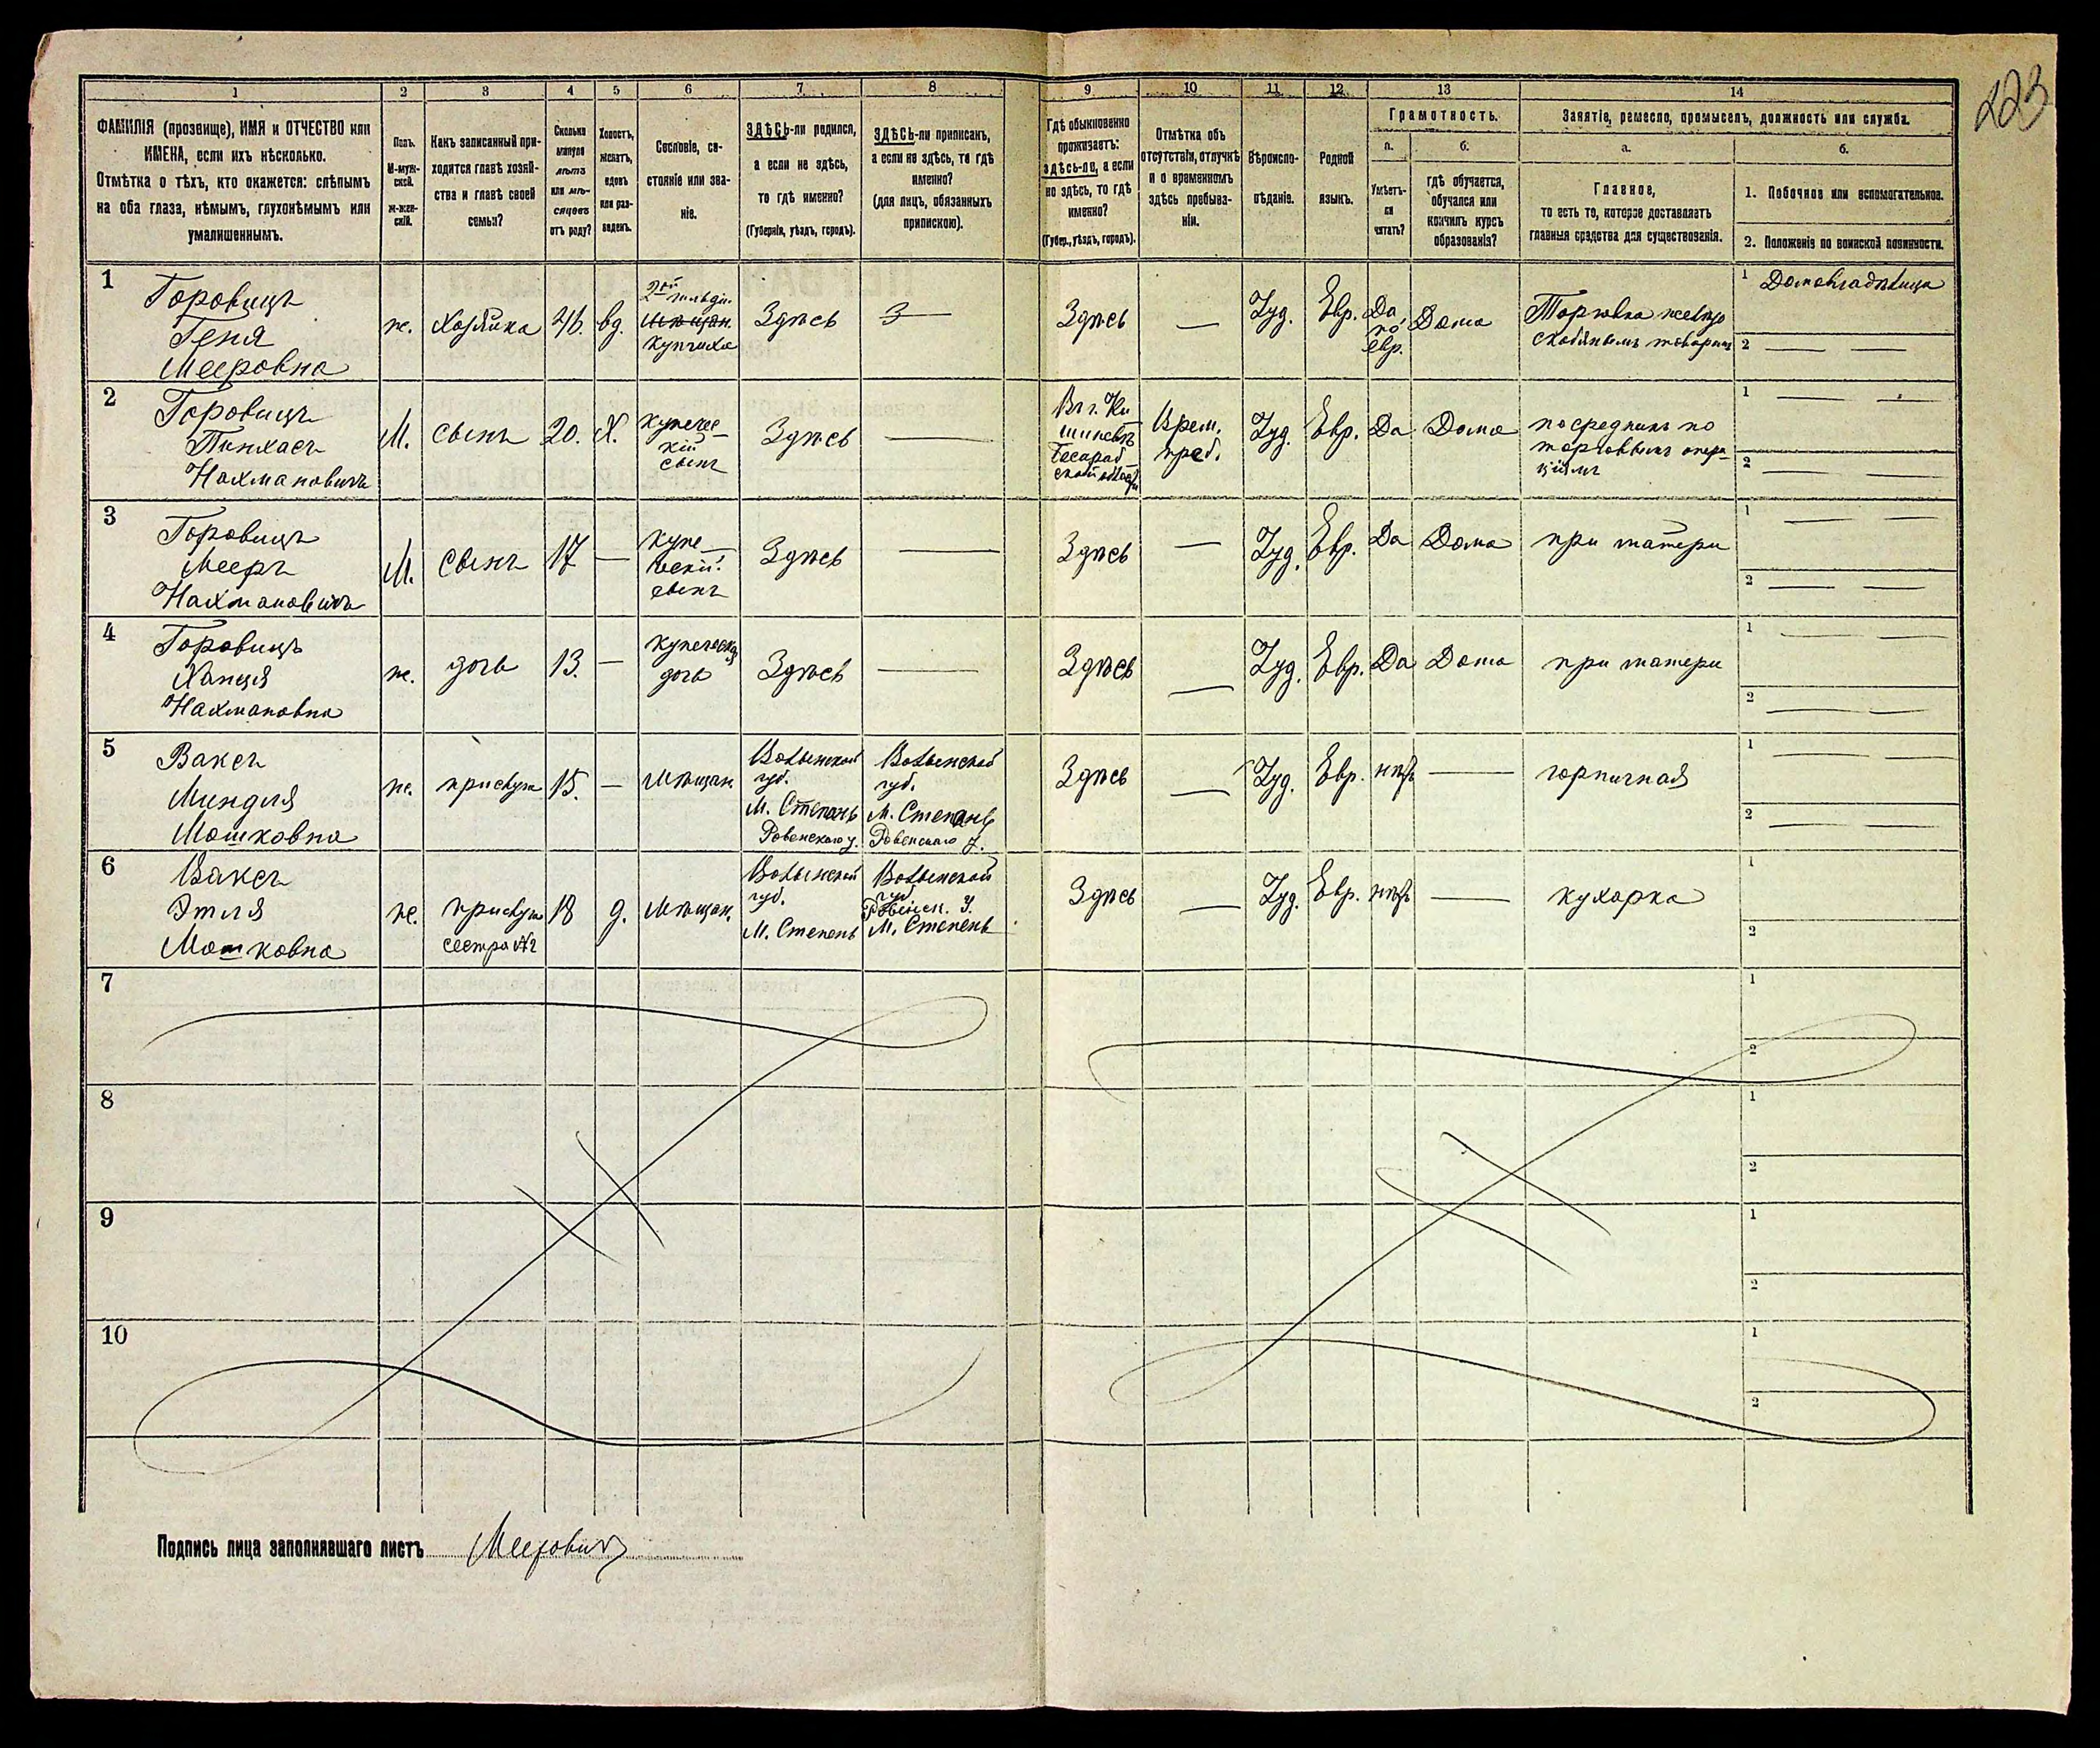 223
1 2 3 4 5 6 7 8 9 10 11 12 13 14
ФАМИЛІЯ (прозвище), ИМЯ и ОТЧЕСТВО или
ИМЕНА, если ихъ нѣсколько.
Отмѣтка о тѣхъ, кто окажется: слѣпымъ
на оба глаза, нѣмымъ, глухонѣмымъ или
умалишеннымъ.
Полъ.
М-муж-
ской.
ж-жен-
скій.
Какъ записанный при-
ходится главѣ хозяй-
ства и главѣ своей
семьи?
Сколько
минуло
лѣтъ
или мѣ-
сяцевъ
отъ роду?
Холостъ,
женатъ,
вдовъ
или раз-
веденъ.
Сословіе, со-
стояніе или зва-
ніе.
ЗДѢСЬ-ли родился,
а если не здѣсь,
то гдѣ именно?
(Губернія, уѣздъ, городъ).
ЗДѢСЬ-ли приписанъ,
а если не здѣсь, то гдѣ
именно?
(для лицъ, обязанныхъ
припискою).
Гдѣ обыкновенно
проживаетъ:
здѣсь-ли, а если
не здѣсь, то гдѣ
именно?
(Губер., уѣздъ, городъ).
Отмѣтка объ
отсутствіи, отлучкѣ
и о временномъ
здѣсь пребыва-
ніи.
Вѣроиспо-
вѣданіе.
Родной
языкъ.
Грамотность.
а.
Умѣетъ-
ли
читать?
б.
гдѣ обучается,
обучался или
кончилъ курсъ
образованія?
Занятіе, ремесло, промыселъ, должность или служба.
а.
Главное,
то есть то, которое доставляетъ
главныя средства для существованія.
б.
1. Побочное или вспомогательное.
2. Положеніе по воинской повинности.
1
Горовицъ
Геня
Мееровна
ж.
Хозяйка
46.
вд.
2ой гильдіи
Мѣщан.
купчиха
Здѣсь
З—
Здѣсь
—
Іуд.
Евр.
Да
по
евр.
Дома
Торговка
1 Домовладѣлица
2 — —
2
Горовицъ
Пинхасъ
Нахмановичъ
М.
сынъ
20.
Х.
Купечес-
кій
сынъ
Здѣсь
—
Въ г. Ки-
шиневѣ
Бесараб-
ской
Врем.
преб.
Іуд.
Евр.
Да
Дома
посредникъ по
торговымъ опера-
ціямъ
1 — —
2 — —
3
Горовицъ
Мееръ
Нахмановичъ
М.
сынъ
17
—
Купе-
ческій
сынъ
Здѣсь
—
Здѣсь
—
Іуд.
Евр.
Да
Дома
при матери
1 — —
2 — —
4
Горовицъ
Ханця
Нахмановна
ж.
дочь
13.
—
купеческая
дочь
Здѣсь
—
Здѣсь
—
Іуд.
Евр.
Да
Дома
при матери
1 — —
2 — —
5
Ваксъ
Миндля
Мошковна
ж.
прислуга
15.
—
Мѣщан.
Волынской
губ.
М. Степань
Ровенскаго у.
Волынской
губ.
М. Степань
Ровенскаго у.
Здѣсь
—
Іуд.
Евр.
нѣтъ
—
горничная
1 — —
2 — —
6
Ваксъ
Этля
Мошковна
ж.
прислуга
сестра
18
д.
Мѣщан.
Волынской
губ.
М. Степень
Волынской
губ.
Ровенск. У.
М. Степень
Здѣсь
—
Іуд.
Евр.
нѣтъ
—
кухарка
1
2
7
1
2
8
1
2
9
1
2
10
1
2
Подпись лица заполнявшаго листъ Меерович